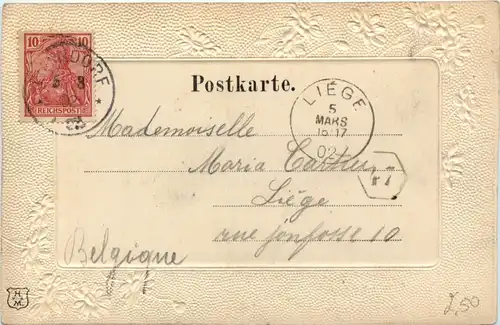 10 10
REICHSPOST
DORF
5 3
Postkarte.
LIÉGE
5
MARS
15-17
02
Mademoiselle
Maria
Liège
rue Jonfosse 10
Belgique
H.
M.
2,50